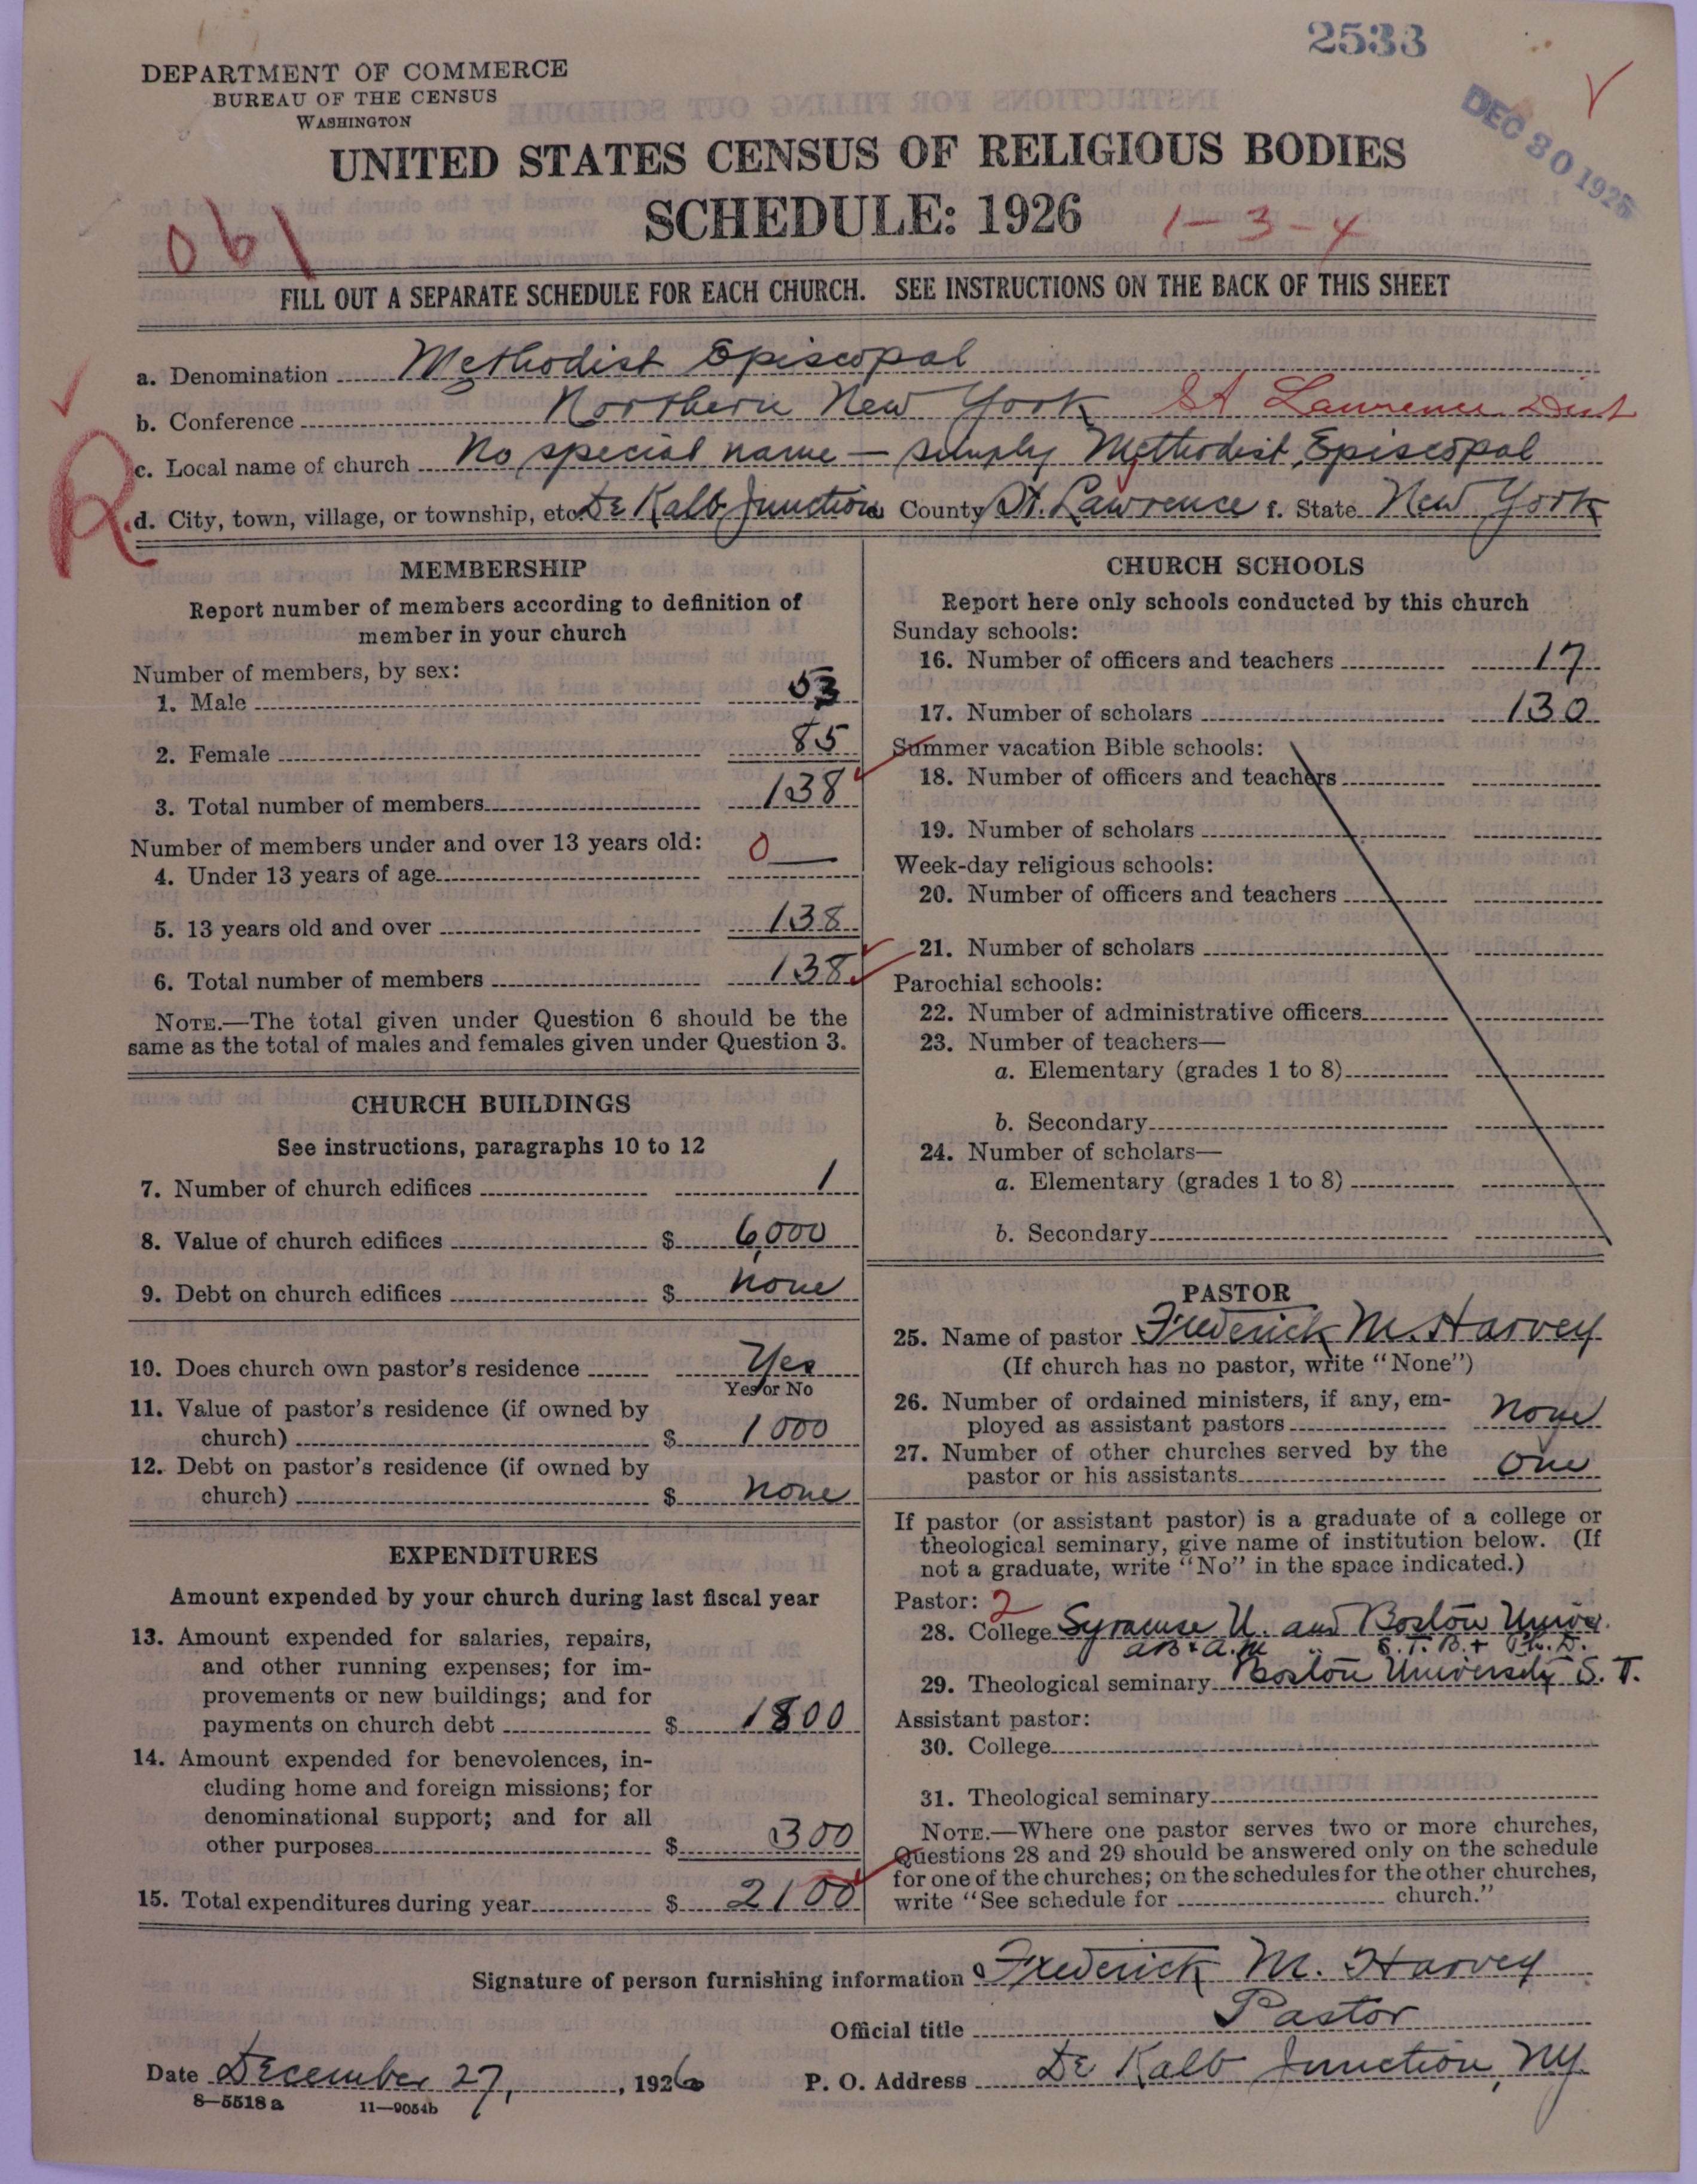 2533
DEPARTMENT OF COMMERCE
BUREAU OF THE CENSUS
WASHINGTON
DEC 30 1926
UNITED STATES CENSUS OF RELIGIOUS BODIES
SCHEDULE: 1926
1-3-4
061
FILL OUT A SEPARATE SCHEDULE FOR EACH CHURCH. SEE INSTRUCTIONS ON THE BACK OF THIS SHEET
a. Denomination Methodist Episcopal
b. Conference Northern New York St Lawrence Dist
c. Local name of church No special name — simply Methodist Episcopal
R
d. City, town, village, or township, etc. De Kalb Junction County St. Lawrence f. State New York
MEMBERSHIP
Report number of members according to definition of
member in your church
Number of members, by sex:
1. Male 53
2. Female 85
3. Total number of members 138
Number of members under and over 13 years old:
4. Under 13 years of age 0 —
5. 13 years old and over 138
6. Total number of members 138
NOTE.—The total given under Question 6 should be the
same as the total of males and females given under Question 3.
CHURCH BUILDINGS
See instructions, paragraphs 10 to 12
7. Number of church edifices 1
8. Value of church edifices $ 6,000
9. Debt on church edifices $ none
10. Does church own pastor's residence Yes
Yes or No
11. Value of pastor's residence (if owned by
church) $ 1000
12. Debt on pastor's residence (if owned by
church) $ none
EXPENDITURES
Amount expended by your church during last fiscal year
13. Amount expended for salaries, repairs,
and other running expenses; for im-
provements or new buildings; and for
payments on church debt $ 1800
14. Amount expended for benevolences, in-
cluding home and foreign missions; for
denominational support; and for all
other purposes $ 300
15. Total expenditures during year $ 2100
CHURCH SCHOOLS
Report here only schools conducted by this church
Sunday schools:
16. Number of officers and teachers 17
17. Number of scholars 130
Summer vacation Bible schools:
18. Number of officers and teachers
19. Number of scholars
Week-day religious schools:
20. Number of officers and teachers
21. Number of scholars
Parochial schools:
22. Number of administrative officers
23. Number of teachers—
a. Elementary (grades 1 to 8)
b. Secondary
24. Number of scholars—
a. Elementary (grades 1 to 8)
b. Secondary
PASTOR
25. Name of pastor Frederick M. Harvey
(If church has no pastor, write "None")
26. Number of ordained ministers, if any, em-
ployed as assistant pastors none
27. Number of other churches served by the
pastor or his assistants one
If pastor (or assistant pastor) is a graduate of a college or
theological seminary, give name of institution below. (If
not a graduate, write "No" in the space indicated.)
Pastor: 2
28. College Syracuse U. and Boston Univ.
AB & A.M. S.T.B. + Ph.D.
29. Theological seminary Boston University S. T.
Assistant pastor:
30. College
31. Theological seminary
NOTE.—Where one pastor serves two or more churches,
Questions 28 and 29 should be answered only on the schedule
for one of the churches; on the schedules for the other churches,
write "See schedule for church."
Signature of person furnishing information Frederick M. Harvey
Official title Pastor
Date December 27, 1926 P. O. Address De Kalb Junction, NY.
8—5518 a 11—9054b